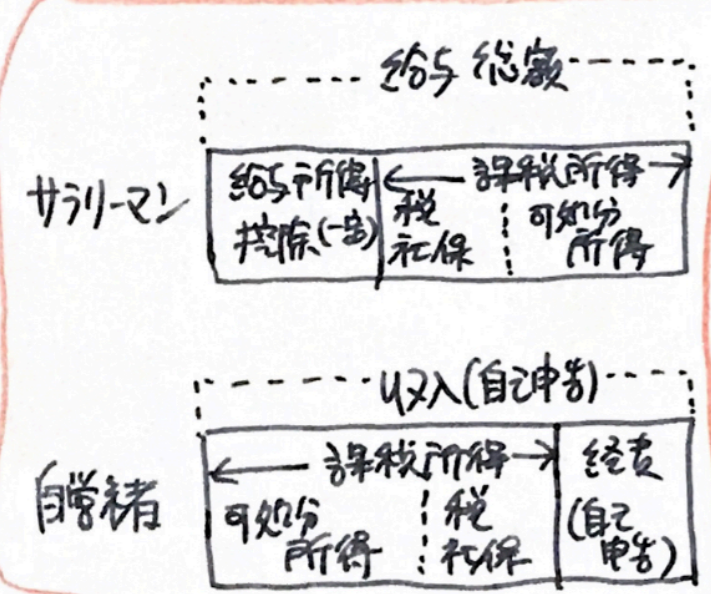 給与総額
サラリーマン
給与所得
控除(一定)
課税所得
税
社保
可処分
所得
収入(自己申告)
自営業者
課税所得
可処分
所得
税
社保
経費
(自己
申告)